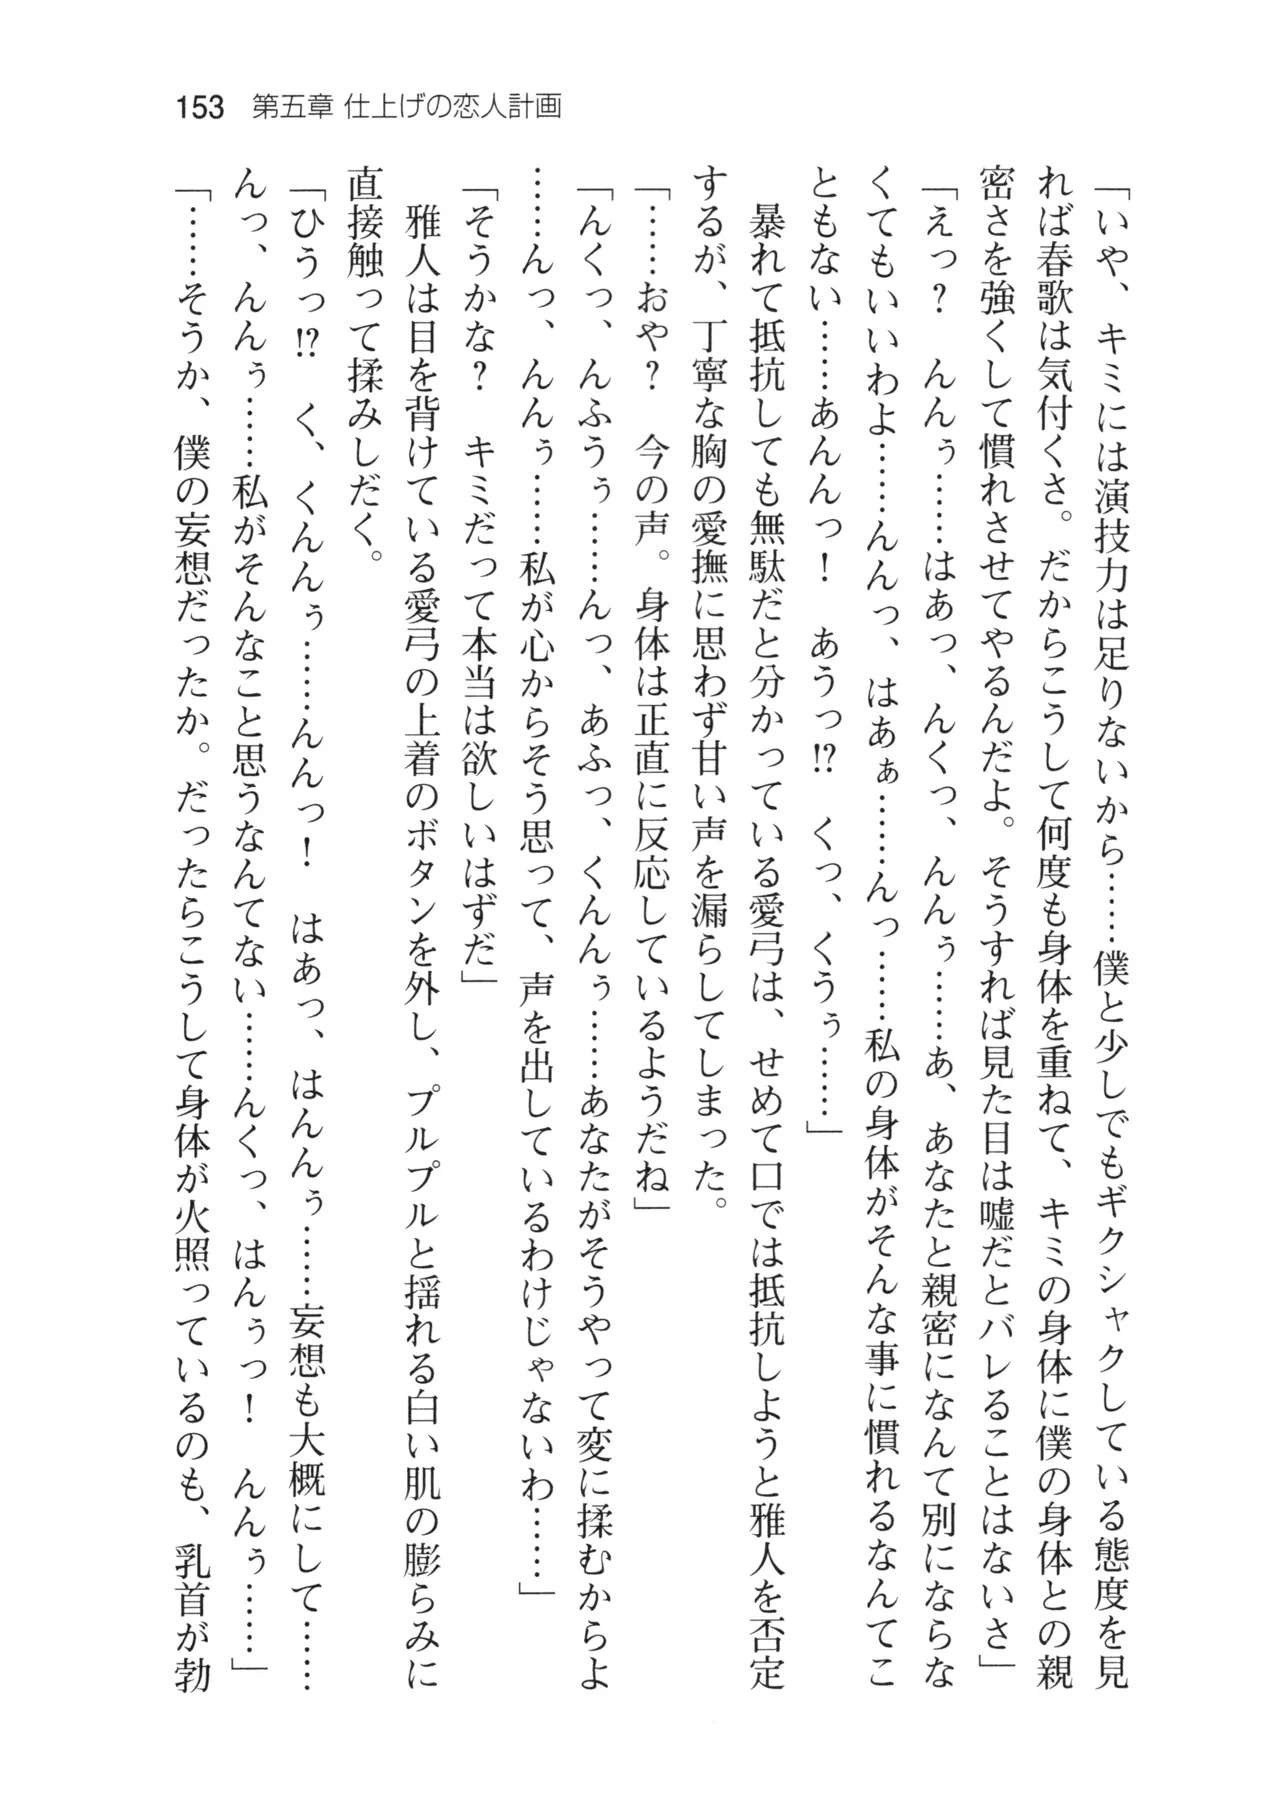 153 第五章 仕上げの恋人計画
「いや、キミには演技力は足りないから……僕と少しでもギクシャクしている態度を見
れば春歌は気付くさ。だからこうして何度も身体を重ねて、キミの身体に僕の身体との親
密さを強くして慣れさせてやるんだよ。そうすれば見た目は嘘だとバレることはないさ」
「えっ？　んんぅ……はあっ、んくっ、んんぅ……あ、あなたと親密になんて別にならな
くてもいいわよ……んんっ、はあぁ……んっ……私の身体がそんな事に慣れるなんてこ
ともない……あんんっ！　あうっ!?　くっ、くうぅ……」
　暴れて抵抗しても無駄だと分かっている愛弓は、せめて口では抵抗しようと雅人を否定
するが、丁寧な胸の愛撫に思わず甘い声を漏らしてしまった。
「……おや？　今の声。身体は正直に反応しているようだね」
「んくっ、んふうぅ……んっ、あふっ、くんんぅ……あなたがそうやって変に揉むからよ
……んっ、んんぅ……私が心からそう思って、声を出しているわけじゃないわ……」
「そうかな？　キミだって本当は欲しいはずだ」
　雅人は目を背けている愛弓の上着のボタンを外し、プルプルと揺れる白い肌の膨らみに
直接触って揉みしだく。
「ひうっ!?　く、くんんぅ……んんっ！　はあっ、はんんぅ……妄想も大概にして……
んっ、んんぅ……私がそんなこと思うなんてない……んくっ、はんぅっ！　んんぅ……」
「……そうか、僕の妄想だったか。だったらこうして身体が火照っているのも、乳首が勃